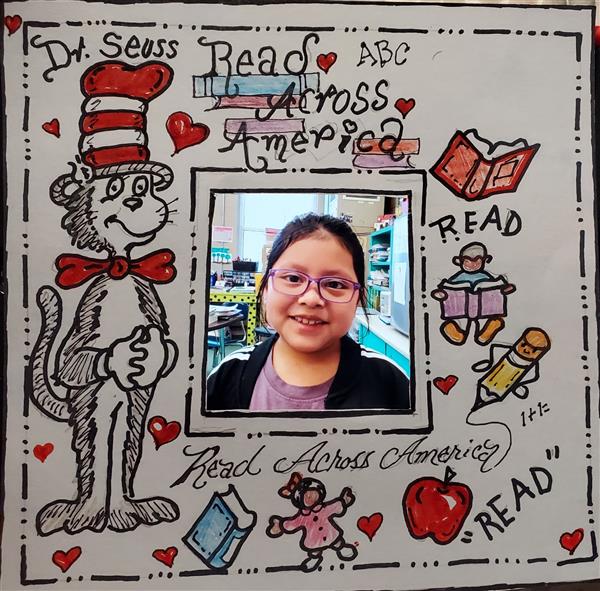 Dr. Seuss
Read
ABC
Across
America
READ
1+1=
Read Across America
"READ"